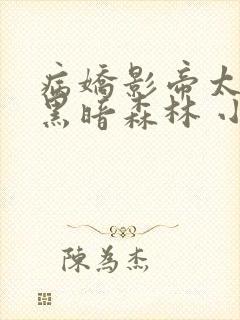 病嬌影帝太
黑暗森林 小
陳為杰